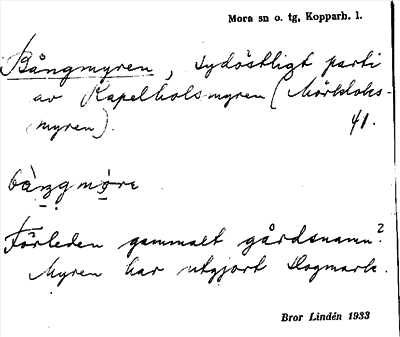 Mora sn o. tg, Kopparb. l.
Bångmyren, sydöstligt parti
av Kapelholsmyren (
myren). 41.
Förleden gammalt gårdsnamn?
Myren har utgjort slogmark.
Bror Lindén 1933